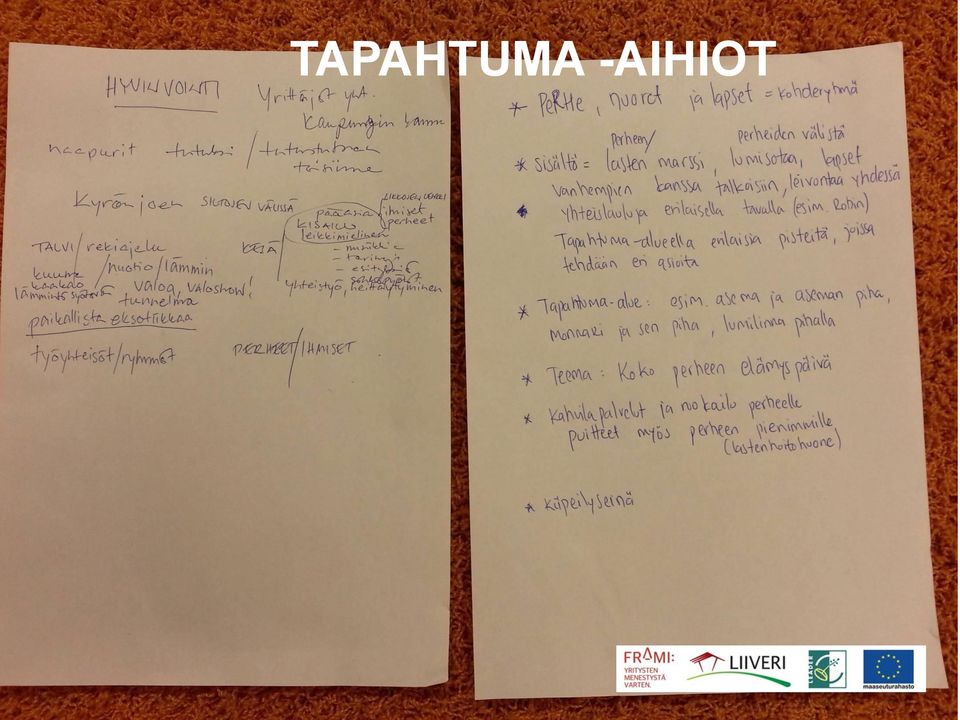 TAPAHTUMA -AIHIOT
HYVINVOINTI
Yrittäjät yht.
kaupungin kanssa
naapurit tutuksi / tutustuminen
toisiinne
Kyrönjoen SILTOJEN VÄLISSÄ
pääasia
ihmiset
perheet
KISAILU
leikkimielinen
- musiikkia
- tarinoja
TALVI / rekiajelu
KESÄ
kuuma
kaakao
/ nuotio / lämmin
valoa, valoshow!
tunnelma
yhteistyö, heittäytyminen
paikallista eksotiikkaa
työyhteisöt / ryhmät
PERHEET / IHMISET
* PERHE, nuoret ja lapset = kohderyhmä
perheen / perheiden välistä
* sisältö = lasten marssi, lumisotaa, lapset
vanhempien kanssa talkoisiin, leivontaa yhdessä
* yhteislauluja erilaisella tavalla (esim. Robin)
Tapahtuma-alueella erilaisia pisteitä, joissa
tehdään eri asioita
* Tapahtuma-alue: esim. asema ja aseman piha,
monnari ja sen piha, lumilinna pihalla
* Teema: Koko perheen elämyspäivä
* kahvilapalvelut ja ruokailu perheelle
puitteet myös perheen pienimmille
(lastenhoitohuone)
* kiipeilyseinä
FRAMI:
YRITYSTEN
MENESTYSTÄ
VARTEN.
LIIVERI
LEADER
maaseuturahasto